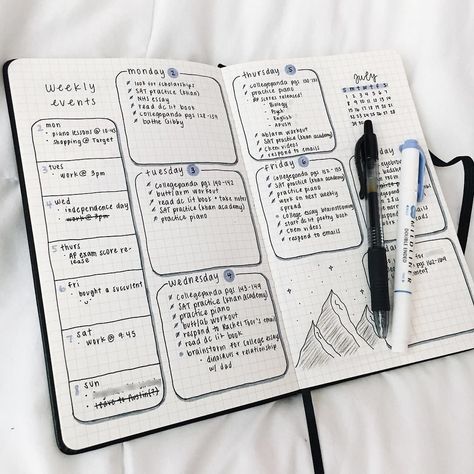 weekly
events
2 mon
· piano lesson @ 10:45
· shopping @ Target
3 tues
· work @ 3pm
4 wed
· independence day
· work @ 3pm
5 thurs
· AP exam score re-
lease
6 fri
· bought a succulent
7 sat
· work @ 9:45
8 sun
monday 2
look for scholarships
SAT practice (khan)
NHS essay
read dc lit book
collegepanda pgs 128-139
bathe Gibby
tuesday 3
collegepanda pgs 140-142
butt/arm workout
read dc lit book + take notes
SAT practice (khan academy)
practice piano
wednesday 4
collegepanda pgs
SAT practice (khan academy)
practice piano
butt/ab workout
respond to Rachel
email
read dc lit book
brainstorm for college essay
· dinosaurs + relationship
w/ dad
thursday 5
collegepanda pgs
practice piano
AP scores released!
- Biology
- Psych
- English
- APUSH
ab/arm workout
SAT practice (khan academy)
Chem videos
respond to emails
friday 6
collegepanda pgs
SAT practice (khan academy)
practice piano
work on next weekly
spread
college essay brainstorming
start dc poetry book
chem videos
respond to emails
july
S M T W T F S
1 2 3 4 5 6 7
8 9 10 11 12 13 14